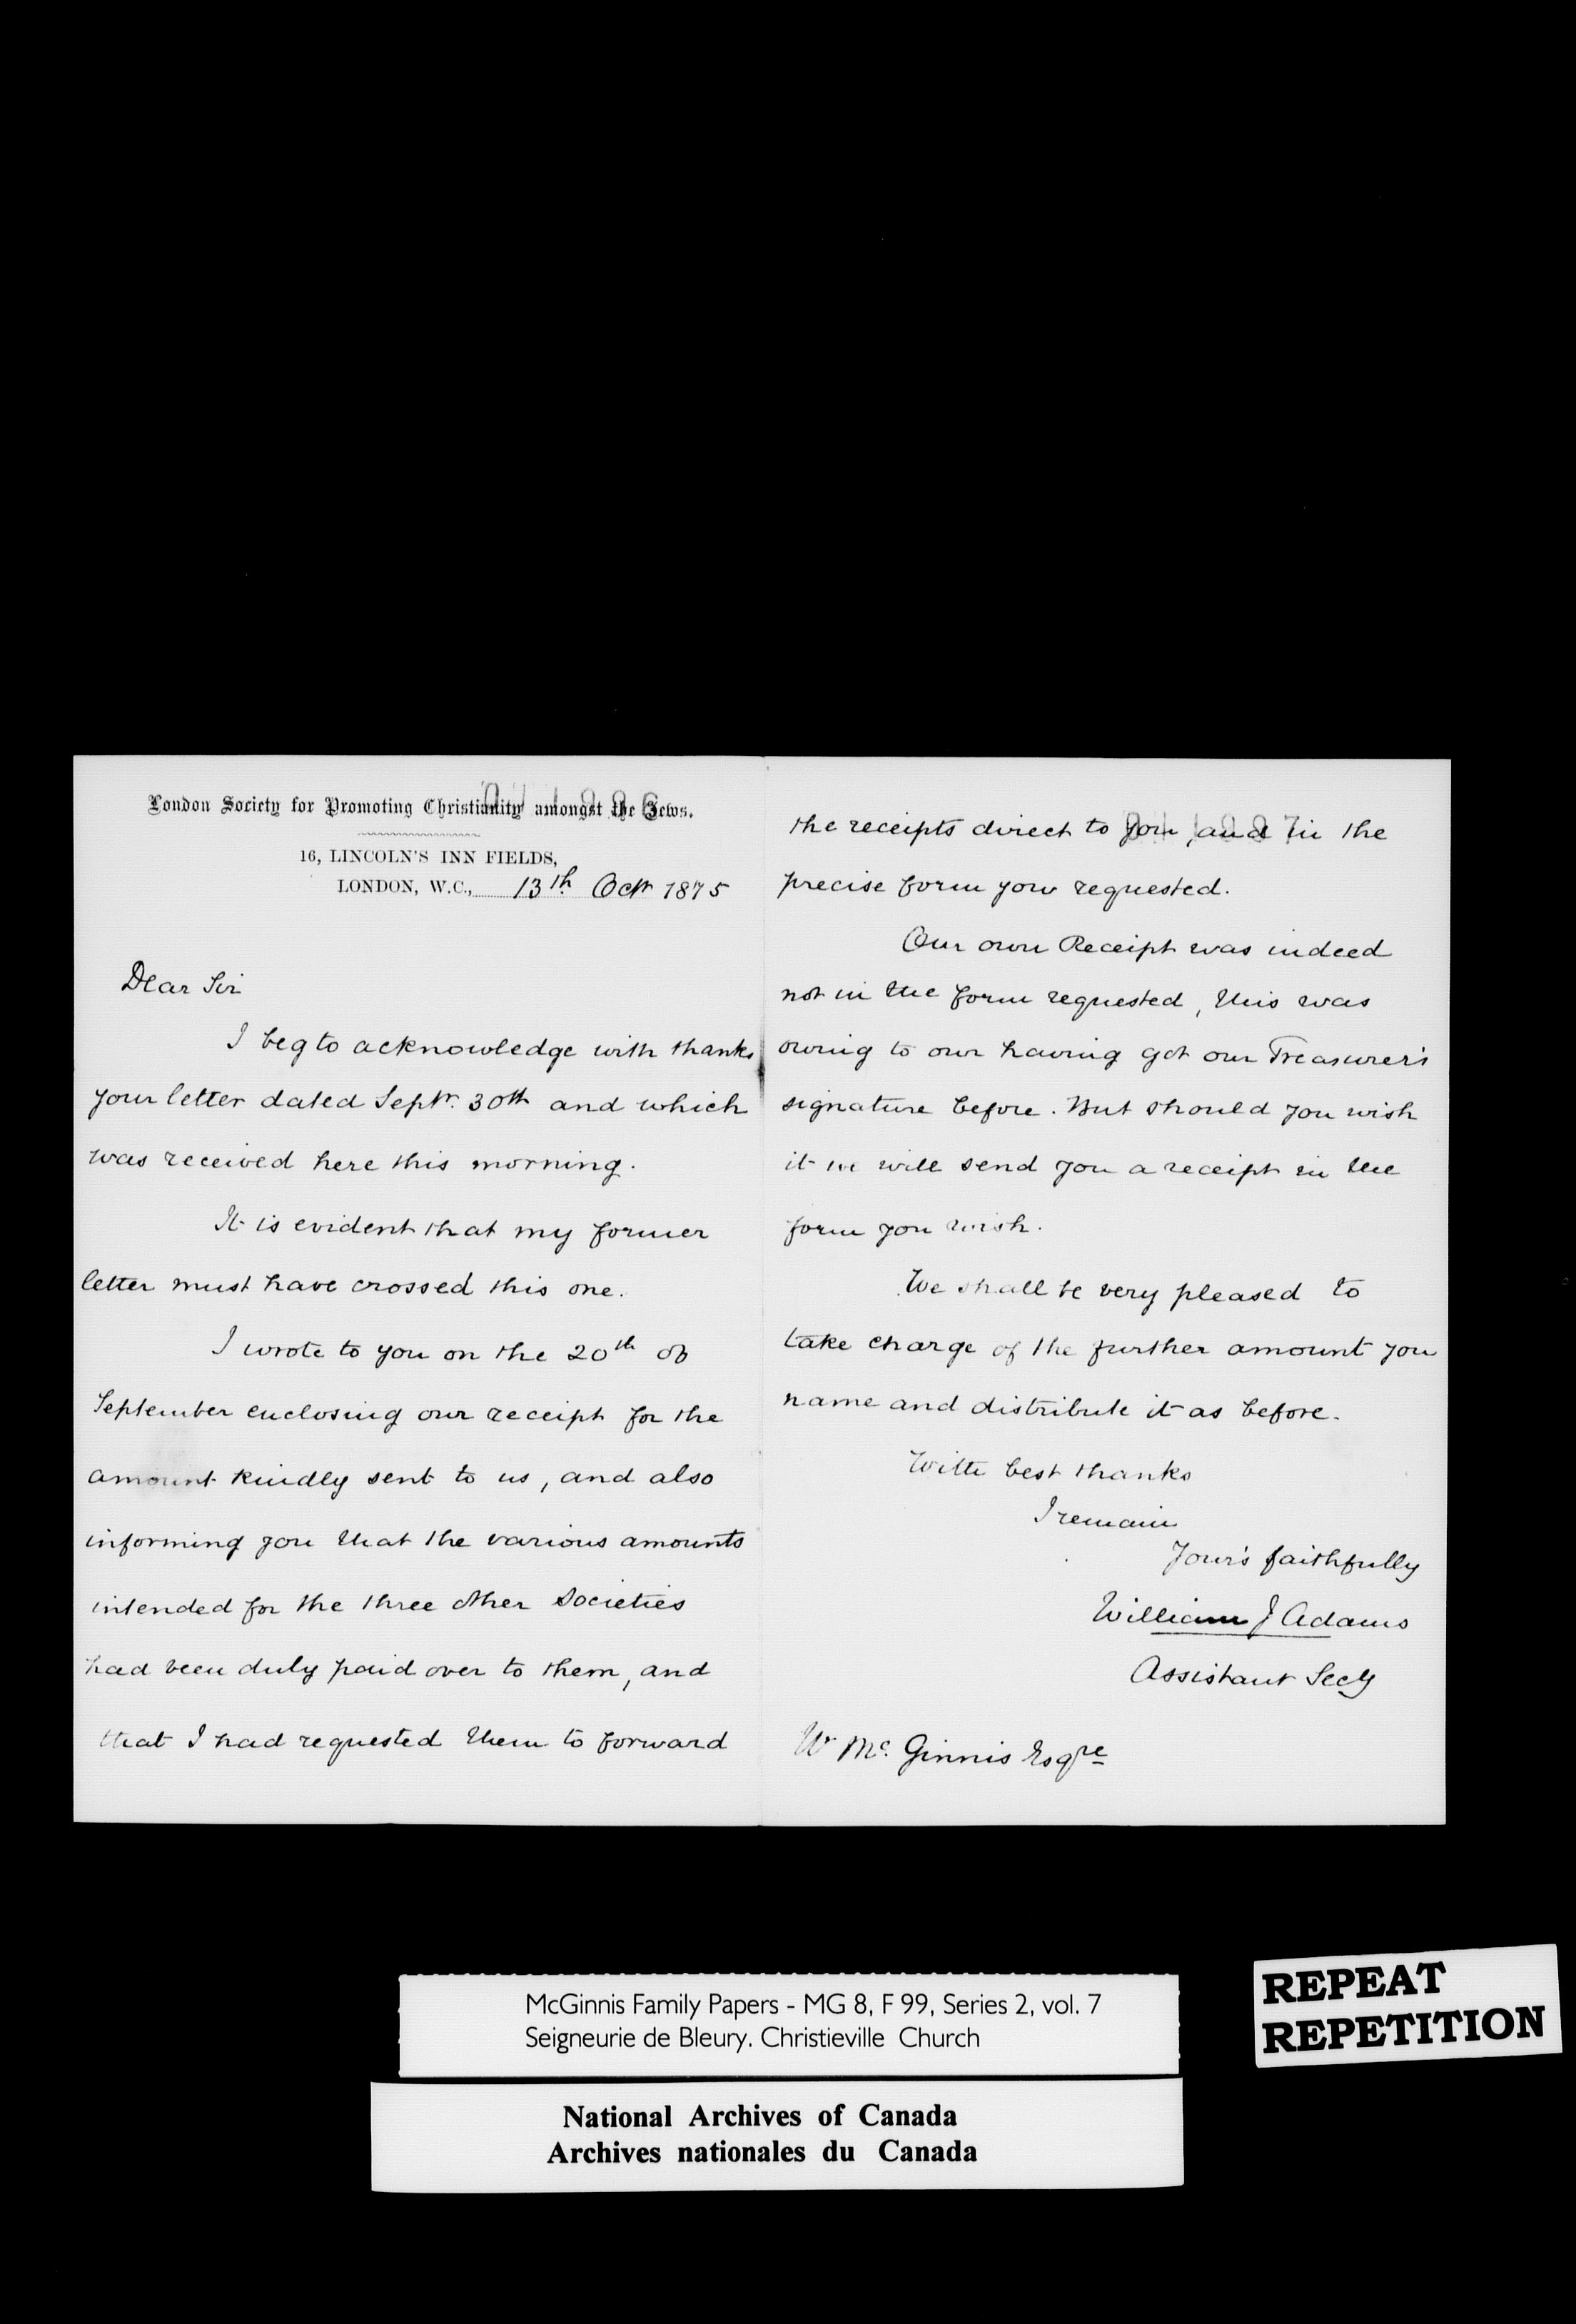 London Society for Promoting Christianity amongst the Jews.
16, LINCOLN'S INN FIELDS,
LONDON, W.C., 13th Octr 1875
Dear Sir
I beg to acknowledge with thanks
your letter dated Septr. 30th and which
was received here this morning.
It is evident that my former
letter must have crossed this one.
I wrote to you on the 20th of
September enclosing our receipt for the
amount kindly sent to us, and also
informing you that the various amounts
intended for the three other Societies
had been duly paid over to them, and
that I had requested them to forward
the receipts direct to you, and in the
precise form you requested.
Our own Receipt was indeed
not in the form requested, this was
owing to our having got our Treasurer's
signature before. But should you wish
it we will send you a receipt in the
form you wish.
We shall be very pleased to
take charge of the further amount you
name and distribute it as before.
With best thanks
I remain
Your's faithfully
William J Adams
Assistant Secy
W Mc. Ginnis Esqre
McGinnis Family Papers - MG 8, F 99, Series 2, vol. 7
Seigneurie de Bleury. Christieville Church
REPEAT
REPETITION
National Archives of Canada
Archives nationales du Canada